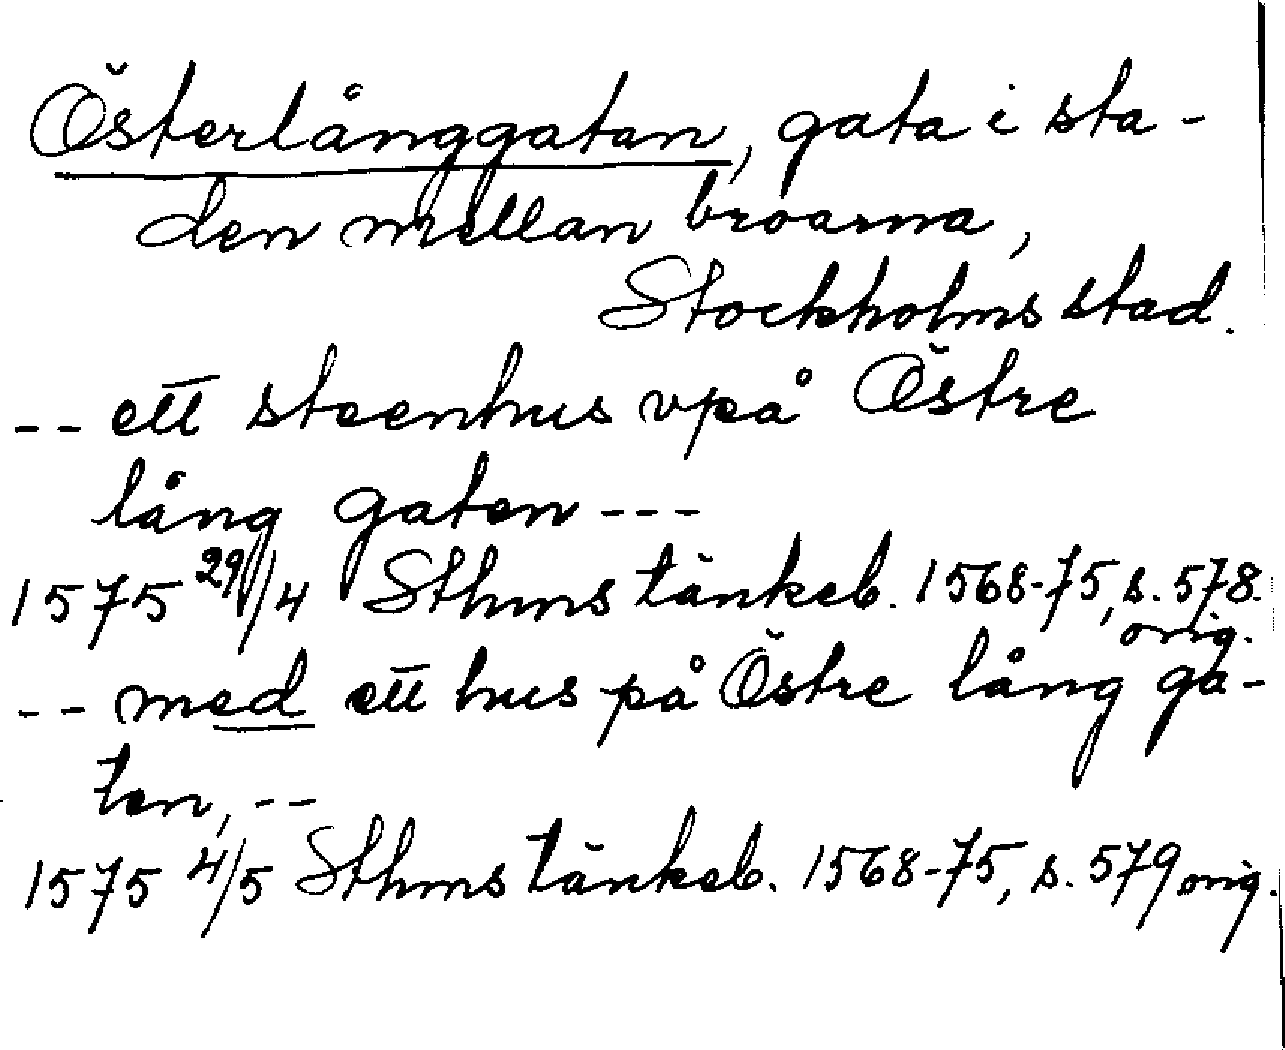 Österlånggatan, gata i sta-
den mellan broarna,
Stockholms stad.
-- ett steenhus vpå Östre
lång gaten ---
1575 29/4 Sthms tänkeb. 1568-75, s. 578.
orig.
-- med ett hus på Östre lång ga-
ten, --
1575 4/5 Sthms tänkeb. 1568-75, s. 579 orig.